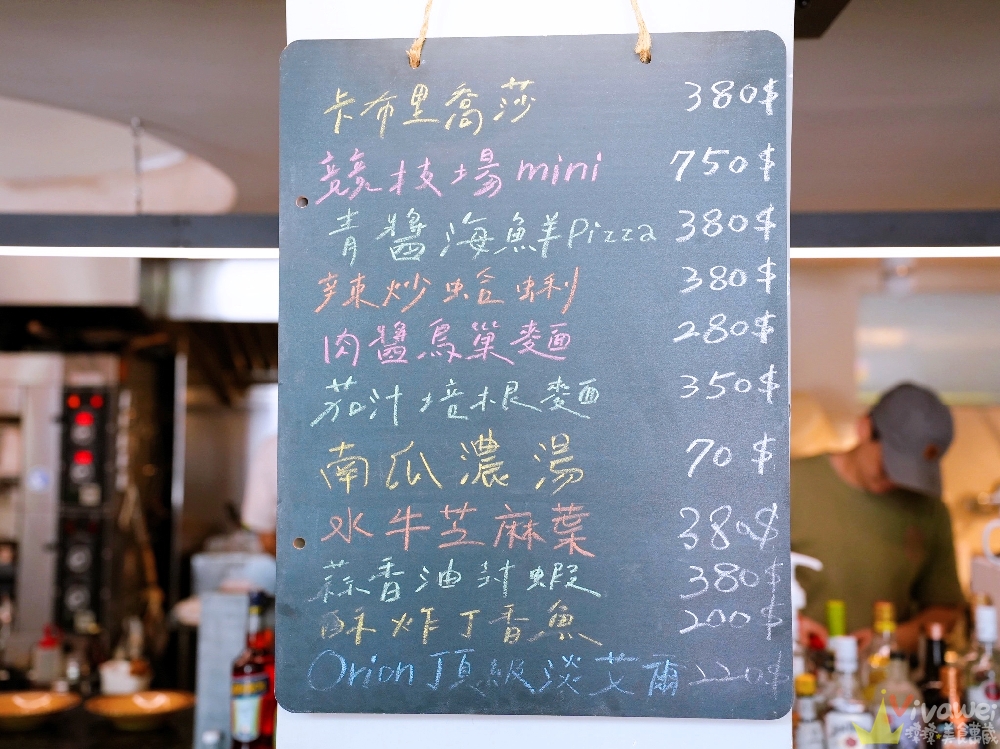 卡布里喬莎 380$
競技場mini 750$
青醬海鮮Pizza 380$
辣炒蛤蜊 380$
肉醬鳥巢麵 280$
茄汁培根麵 350$
南瓜濃湯 70$
水牛芝麻葉 380$
蒜香油封蝦 380$
酥炸丁香魚 200$
Orion頂級淡艾爾 220$
vivawei